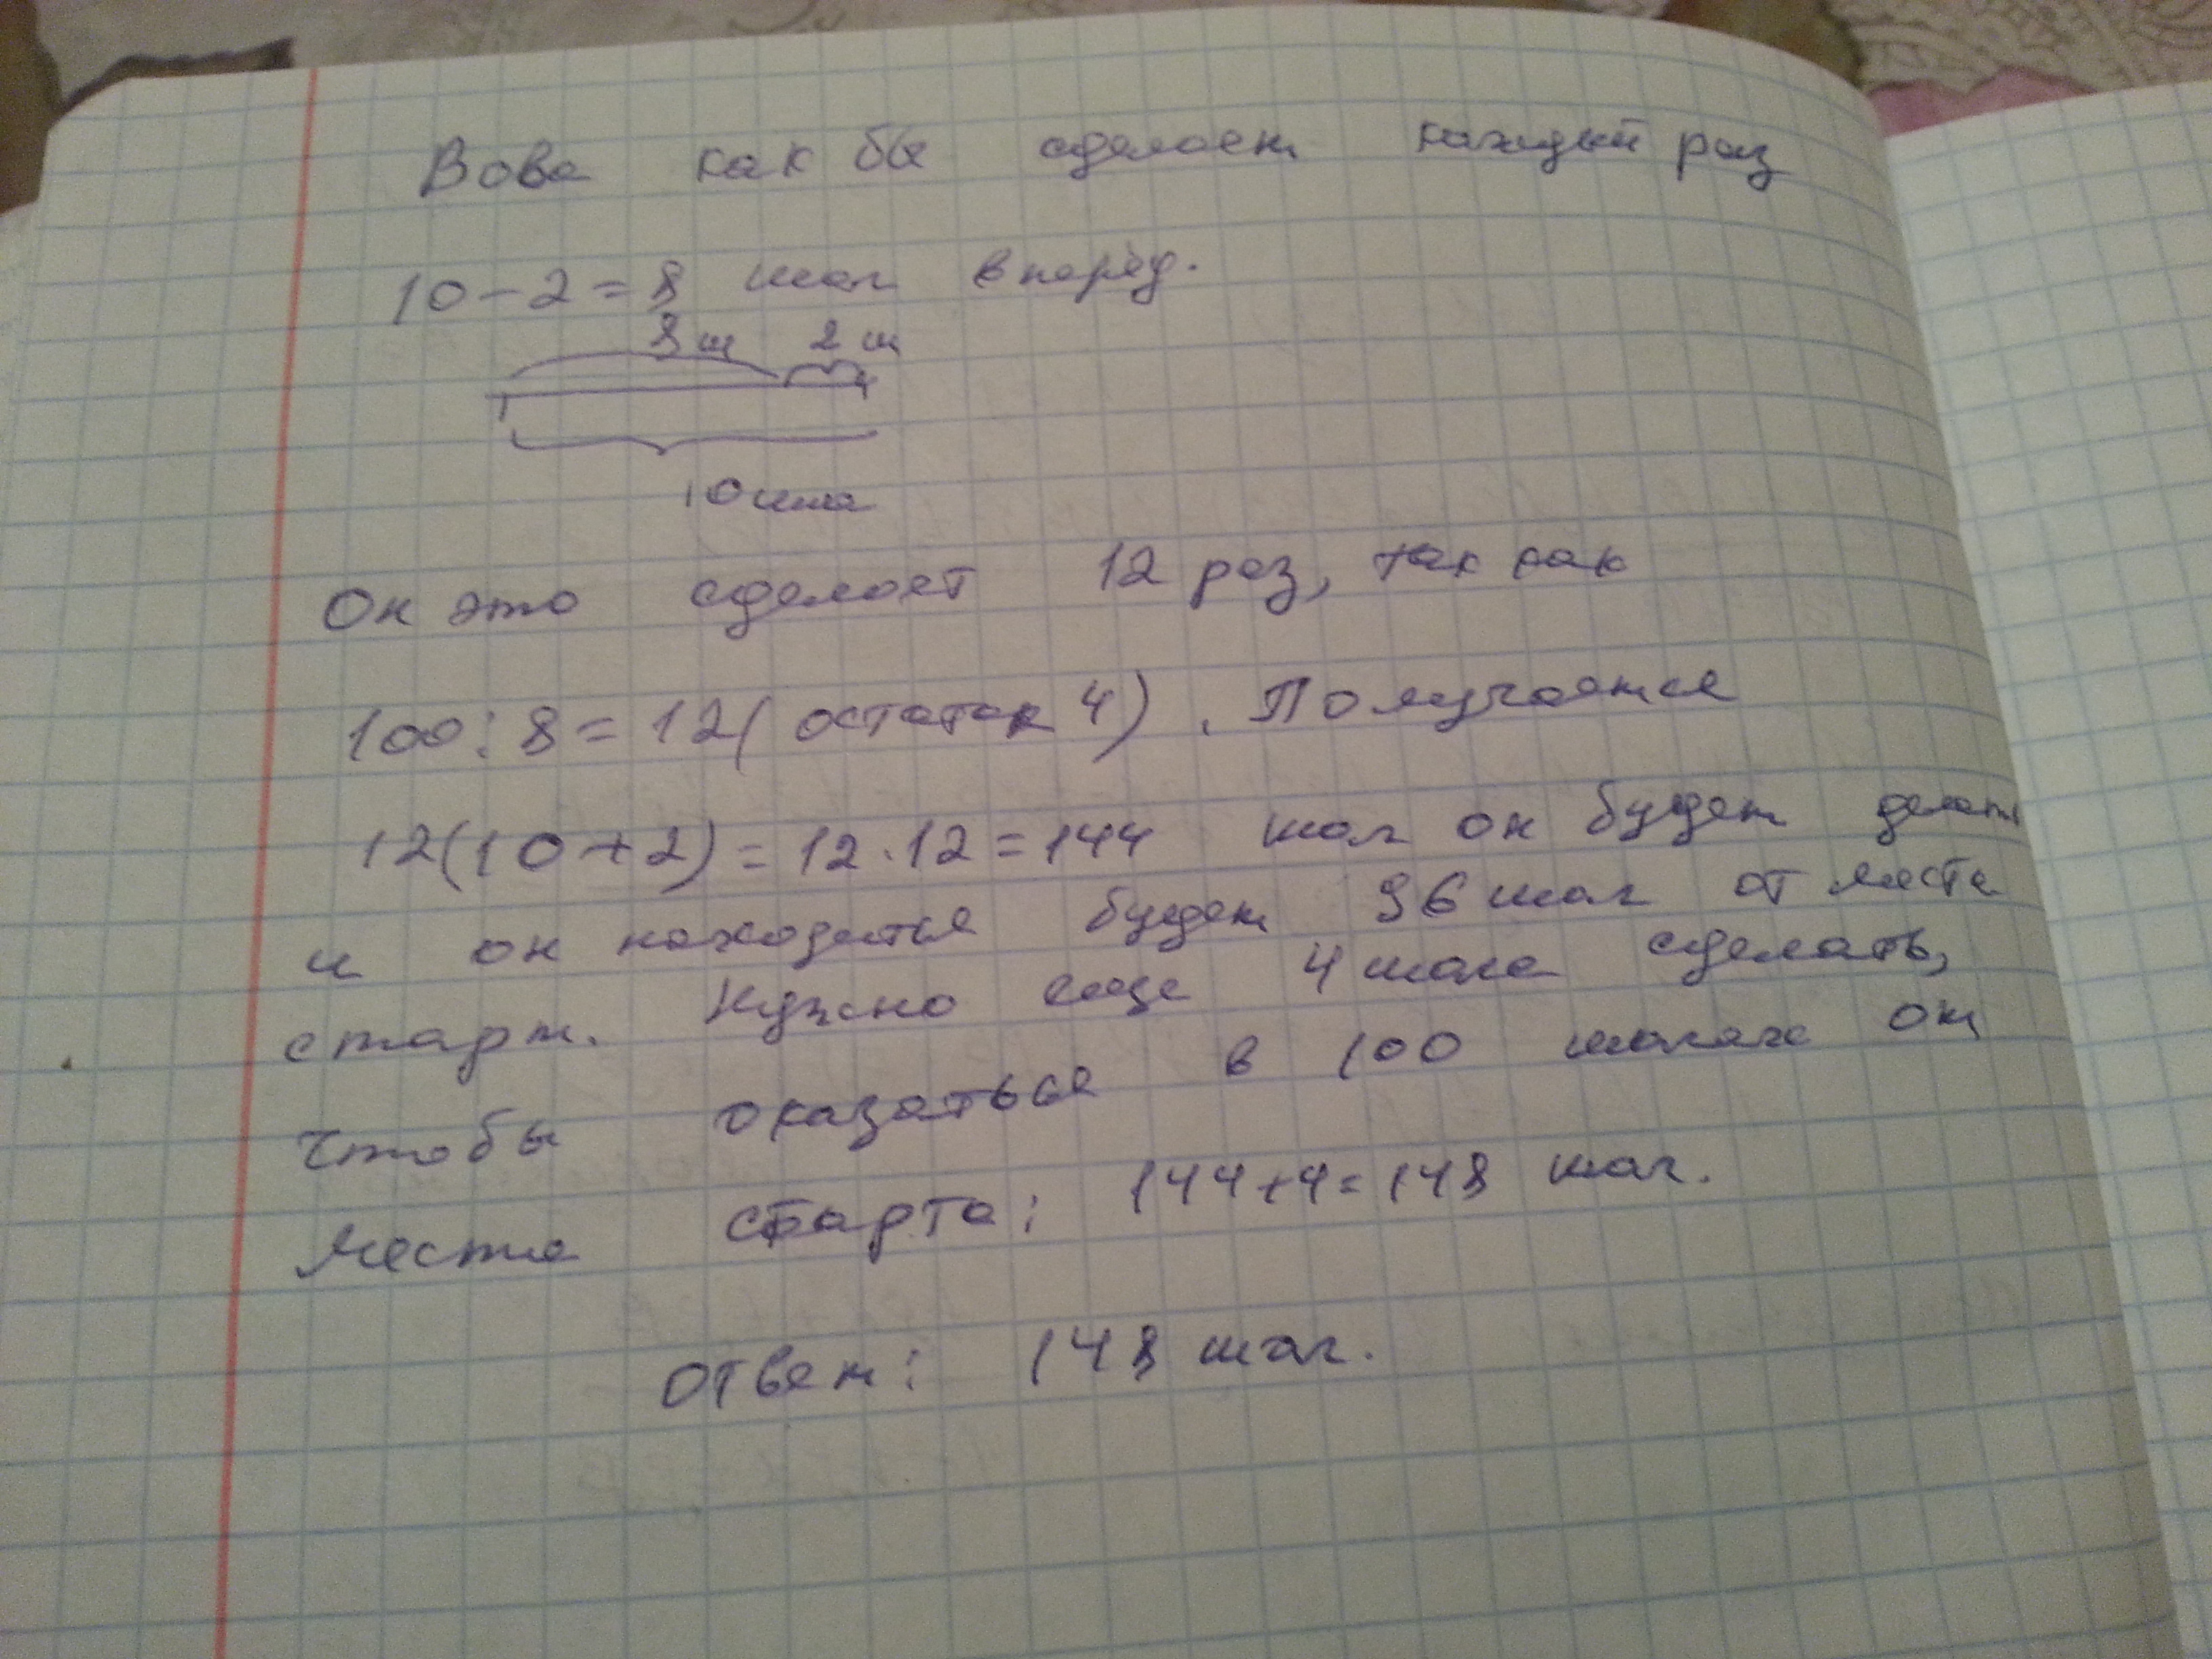 Вова как бы сделает каждый раз
10-2=8 шаг вперёд.
8ш 2ш
10 ша
Он это сделает 12 раз, так как
100:8=12(остаток 4). Получается
12(10+2)=12·12=144 шаг он будет делать
и он находиться будет 96 шаг от места
старт. Нужно еще 4 шага сделать,
чтобы оказаться в 100 шагах от
места старта: 144+4=148 шаг.
Ответ: 148 шаг.